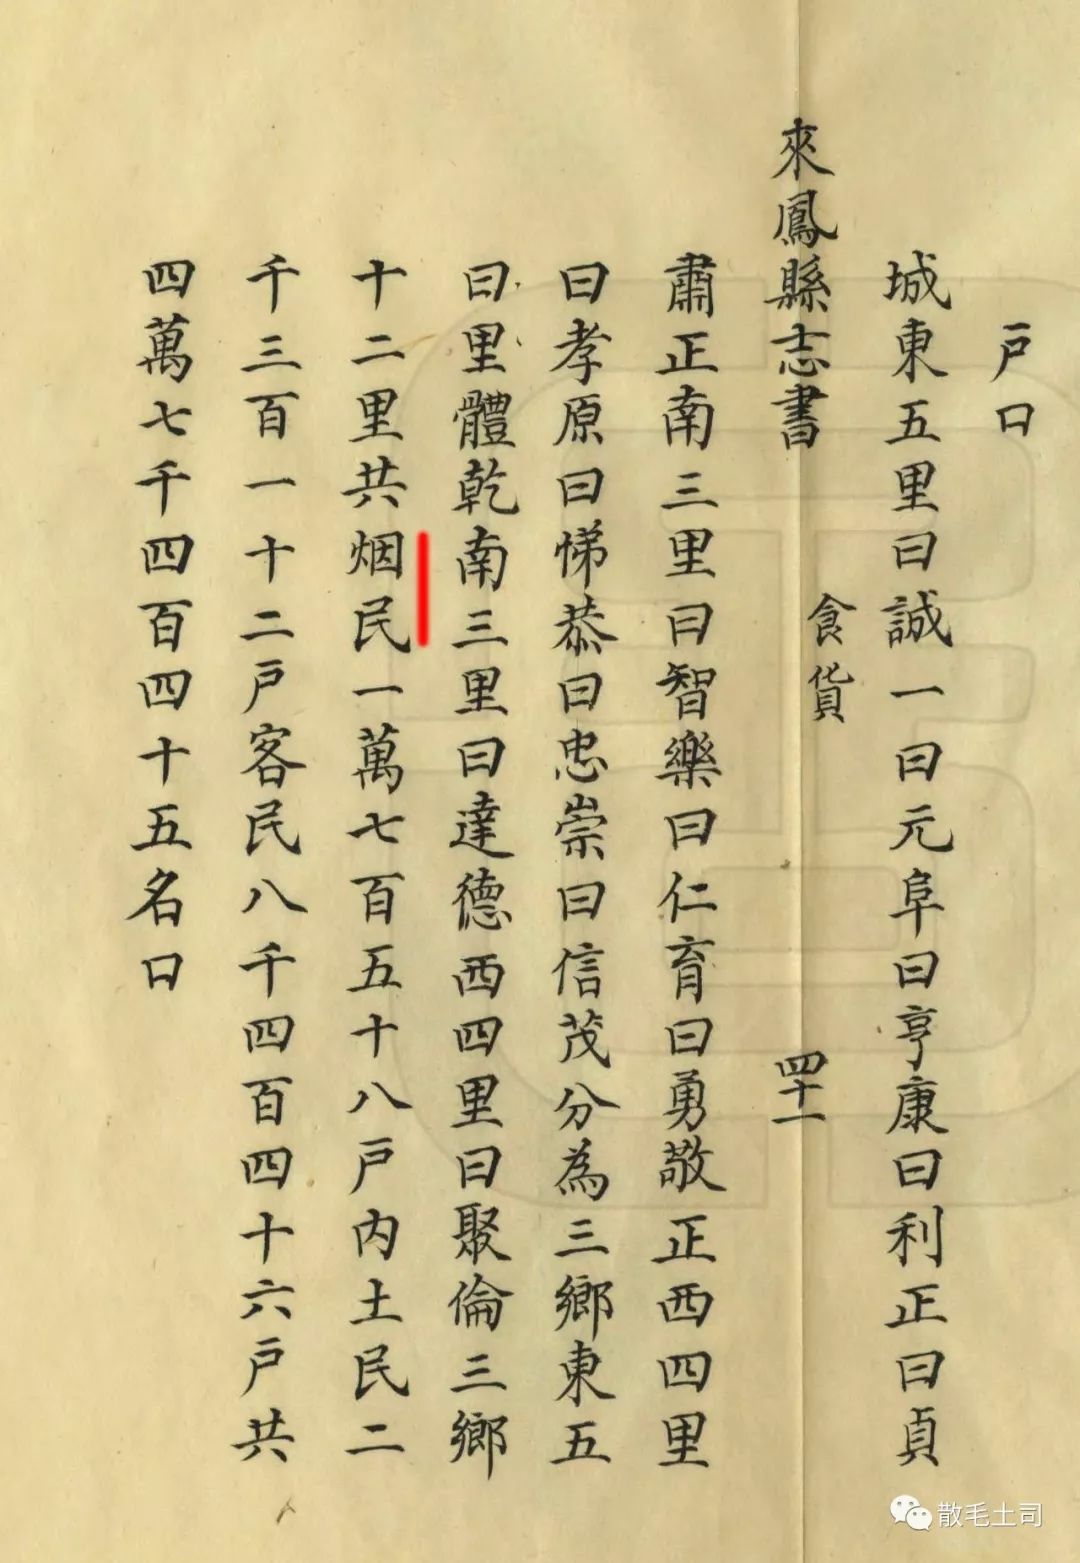 戶口
城東五里曰誠一曰元阜曰亨康曰利正曰貞
來鳳縣志書 食貨 四十一
肅正南三里曰智樂曰仁育曰勇敬正西四里
曰孝原曰悌恭曰忠崇曰信茂分為三鄉東五
曰里體乾南三里曰達德西四里曰聚倫三鄉
十二里共烟民一萬七百五十八戶内土民二
千三百一十二戶客民八千四百四十六戶共
四萬七千四百四十五名口
散毛土司